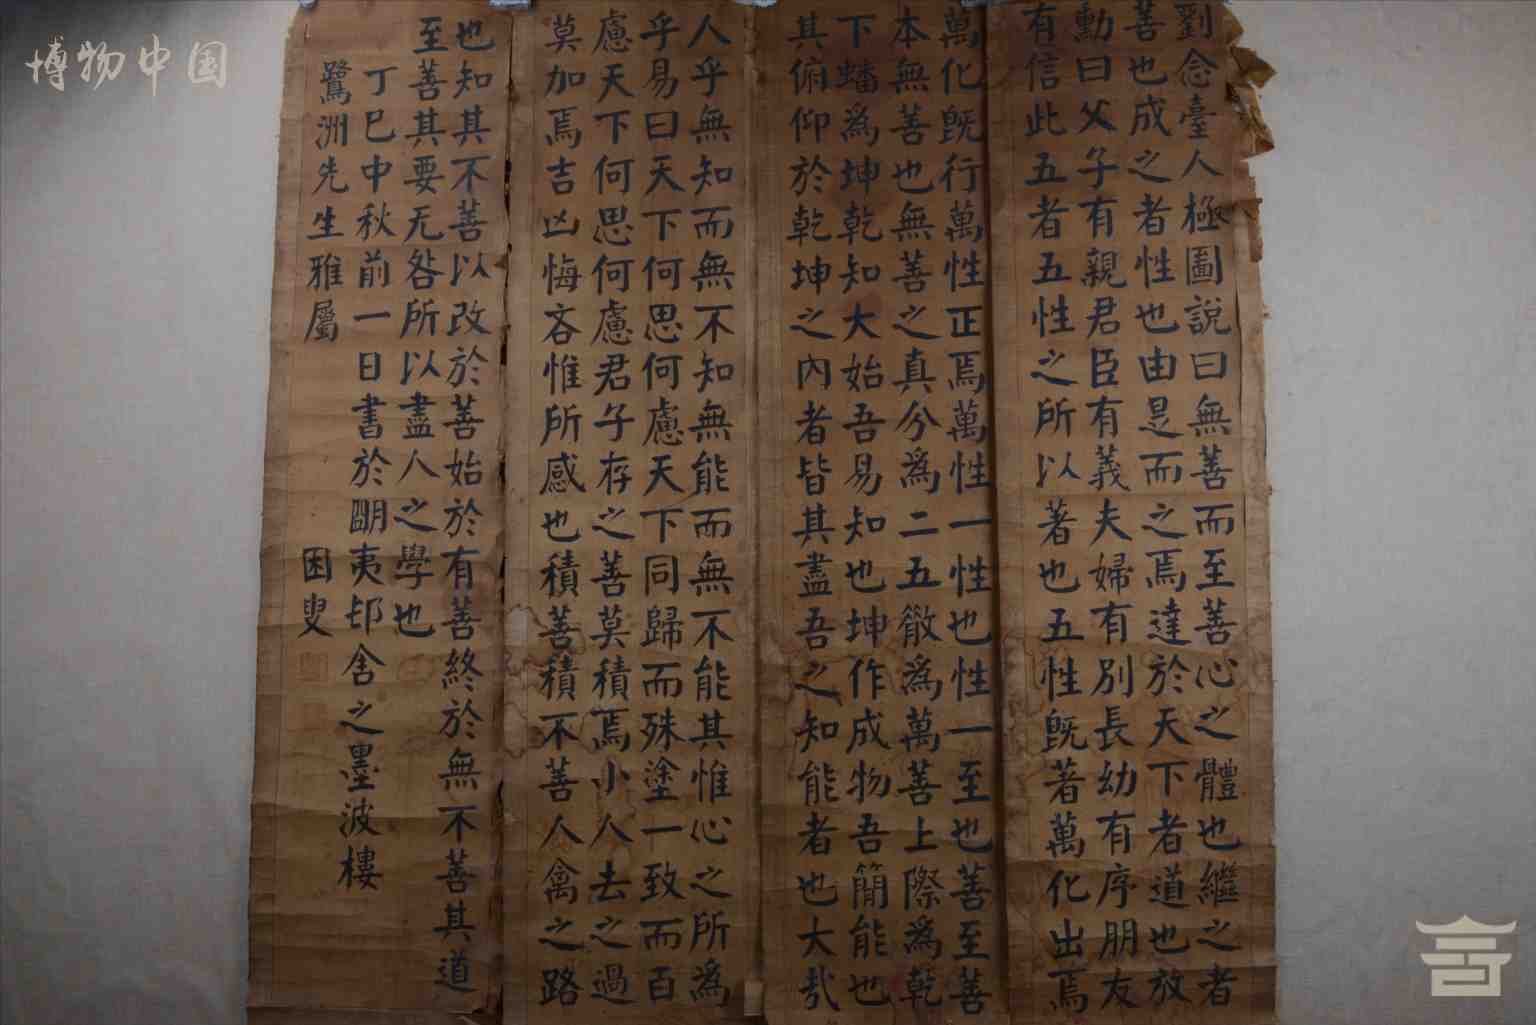 劉念臺人極圖說曰無善而至善心之體也繼之者
善也成之者性也由是而之焉達於天下者道也放
勳曰父子有親君臣有義夫婦有別長幼有序朋友
有信此五者五性之所以著也五性既著萬化出焉
萬化既行萬性正焉萬性一性也性一至也善至善
本無善也無善之真分為二五散為萬善上際為乾
下蟠為坤乾知大始吾易知也坤作成物吾簡能也
其俯仰於乾坤之內者皆其盡吾之知能者也大哉
人乎無知而無不知無能而無不能其惟心之所為
乎易曰天下何思何慮天下同歸而殊塗一致而百
慮天下何思何慮君子存之善莫積焉小人去之過
莫加焉吉凶悔吝惟所感也積善積不善人禽之路
也知其不善以改於善始於有善終於無不善其道
至善其要无咎所以盡人之學也
丁巳中秋前一日書於明夷邨舍之墨波樓
鷺洲先生雅屬
困叟
博物中国